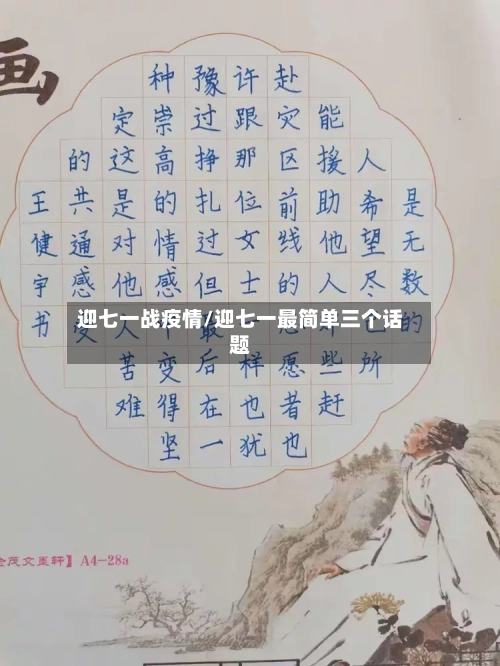 画
是无数的
人希望尽己所
能援助他人些赶
赴灾区前线的愿者也
许跟那位女士样也犹
豫过挣扎过但最后在一
种崇高的情感变得坚
定这是对他人苦难
的共通感
王健宇书
迎七一战疫情/迎七一最简单三个话
题
文墨轩】A4-28a